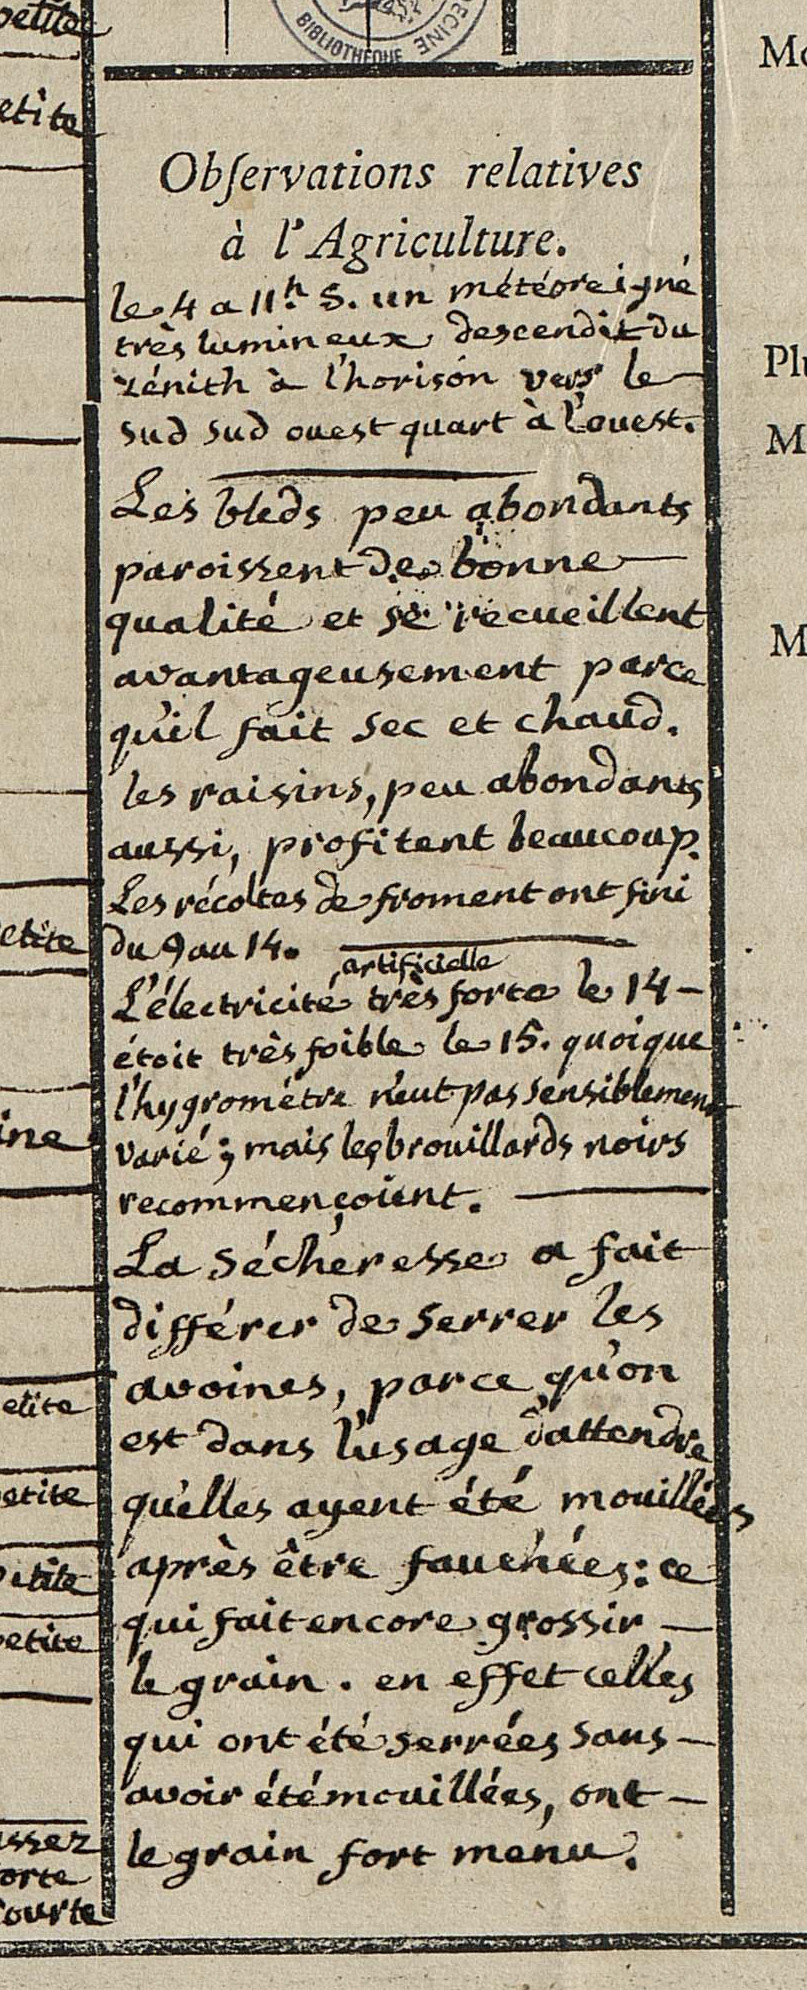 petite
BIBLIOTHEQUE
etite
Obſervations relatives
à l'Agriculture.
le 4 a 11.h S. un météore igné
très lumineux descendit du
zénith à l'horisón vers le
sud sud ouest quart à l'ouest.
Les bleds peu abondants
paroissent de bonne
qualité et se recueillent
avantageusement parce
qu'il fait sec et chaud.
les raisins, peu abondants
aussi, profitent beaucoup.
Les récoltes de froment ont fini
du 9 au 14.
artificielle
L'électricité très forte le 14 —
étoit très foible le 15. quoique
l'hygromètre n'eut pas sensiblement
varié; mais les brouillards noirs
recommençoient.
La séchéresse a fait
différer de serrer les
avoines, parce qu'on
est dans l'usage d'attendre
qu'elles ayent été mouillées
après être fauchées: ce
qui fait encore grossir —
le grain. en effet celles
qui ont été serrées sans —
avoir été mouillées, ont —
le grain fort menu.
etite
ine
etite
etite
etite
petite
ssez
orte
courte
Mo
Plu
M
M